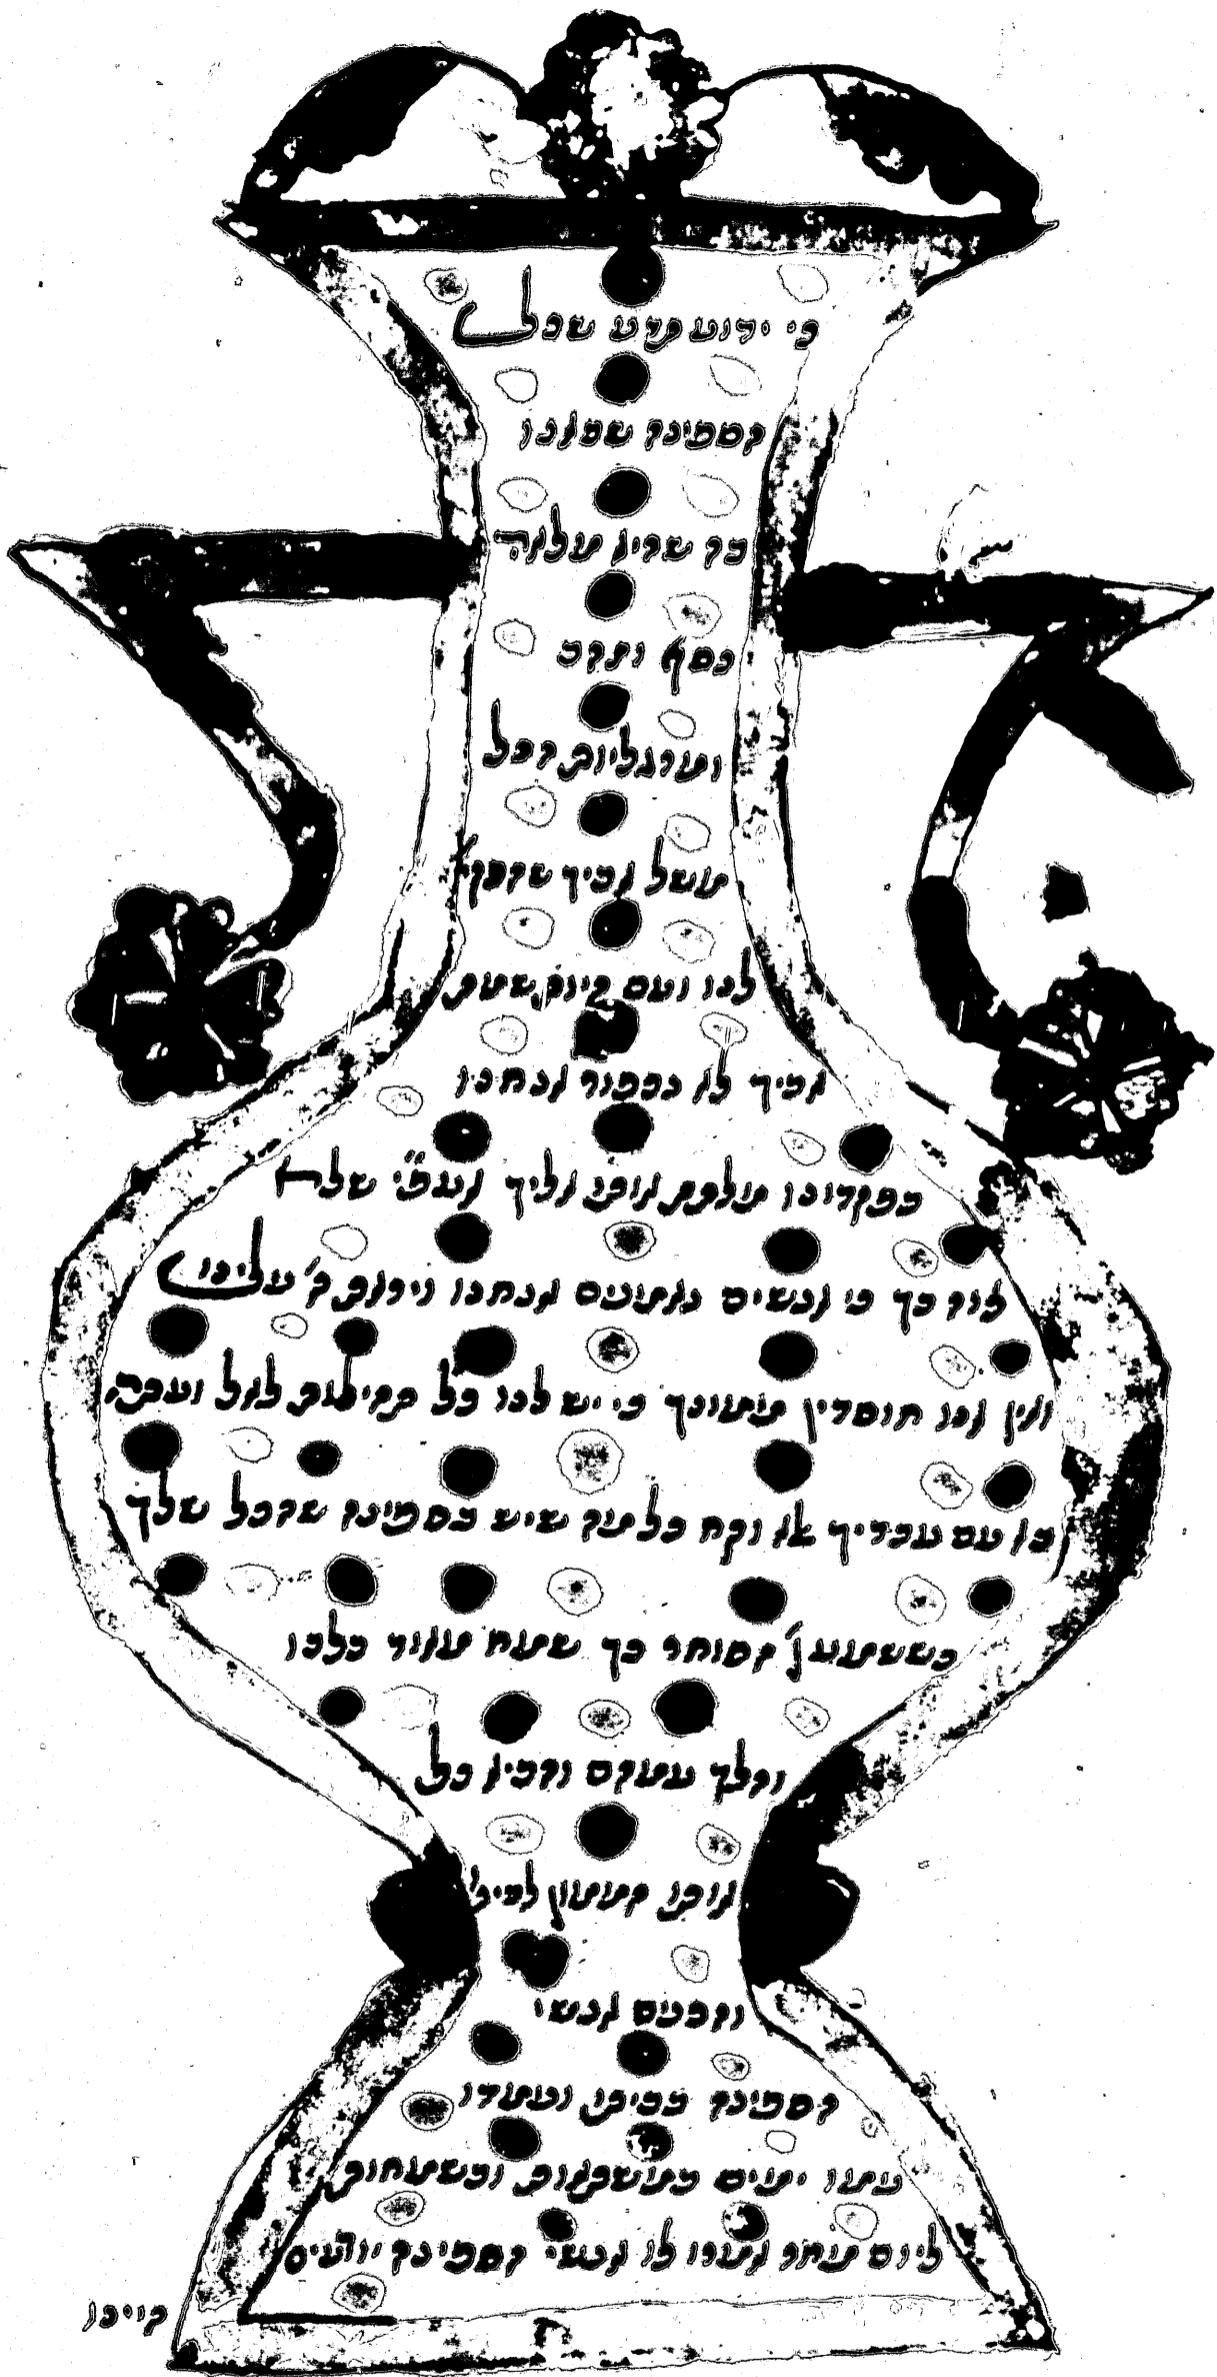 כי ידוע תדע שכל
הספינה שמלנו
כך שהיא מלאה
כסף וזהב
ומרגליות הכל
משל אביך שהפק׳
לנו ועם היות שמת
אביך לא נכפור אנחנו
בפקדונו מלתת אותו אליך אעפ״י שלא
לוה כך כי אנשים נאמנים אנחנו ויראת ה׳ עלינו
ואין אנו חוסדין ממונך כי יש לנו כל תהילות לאל ועתה
בא עם עבדיך וקח כל מה שיש בספינה שהכל שלך
כששמע הסוחר כך שמח מאוד בלבו
והלך עמהם והביא כל
אותו הממון לביתו
והכניס אנשי
הספינה בביתו ועמדו
עמו ימים במשתאות ובשמחות
ליום מחר אמרו לו אנשי הספינה יודעים
היינו